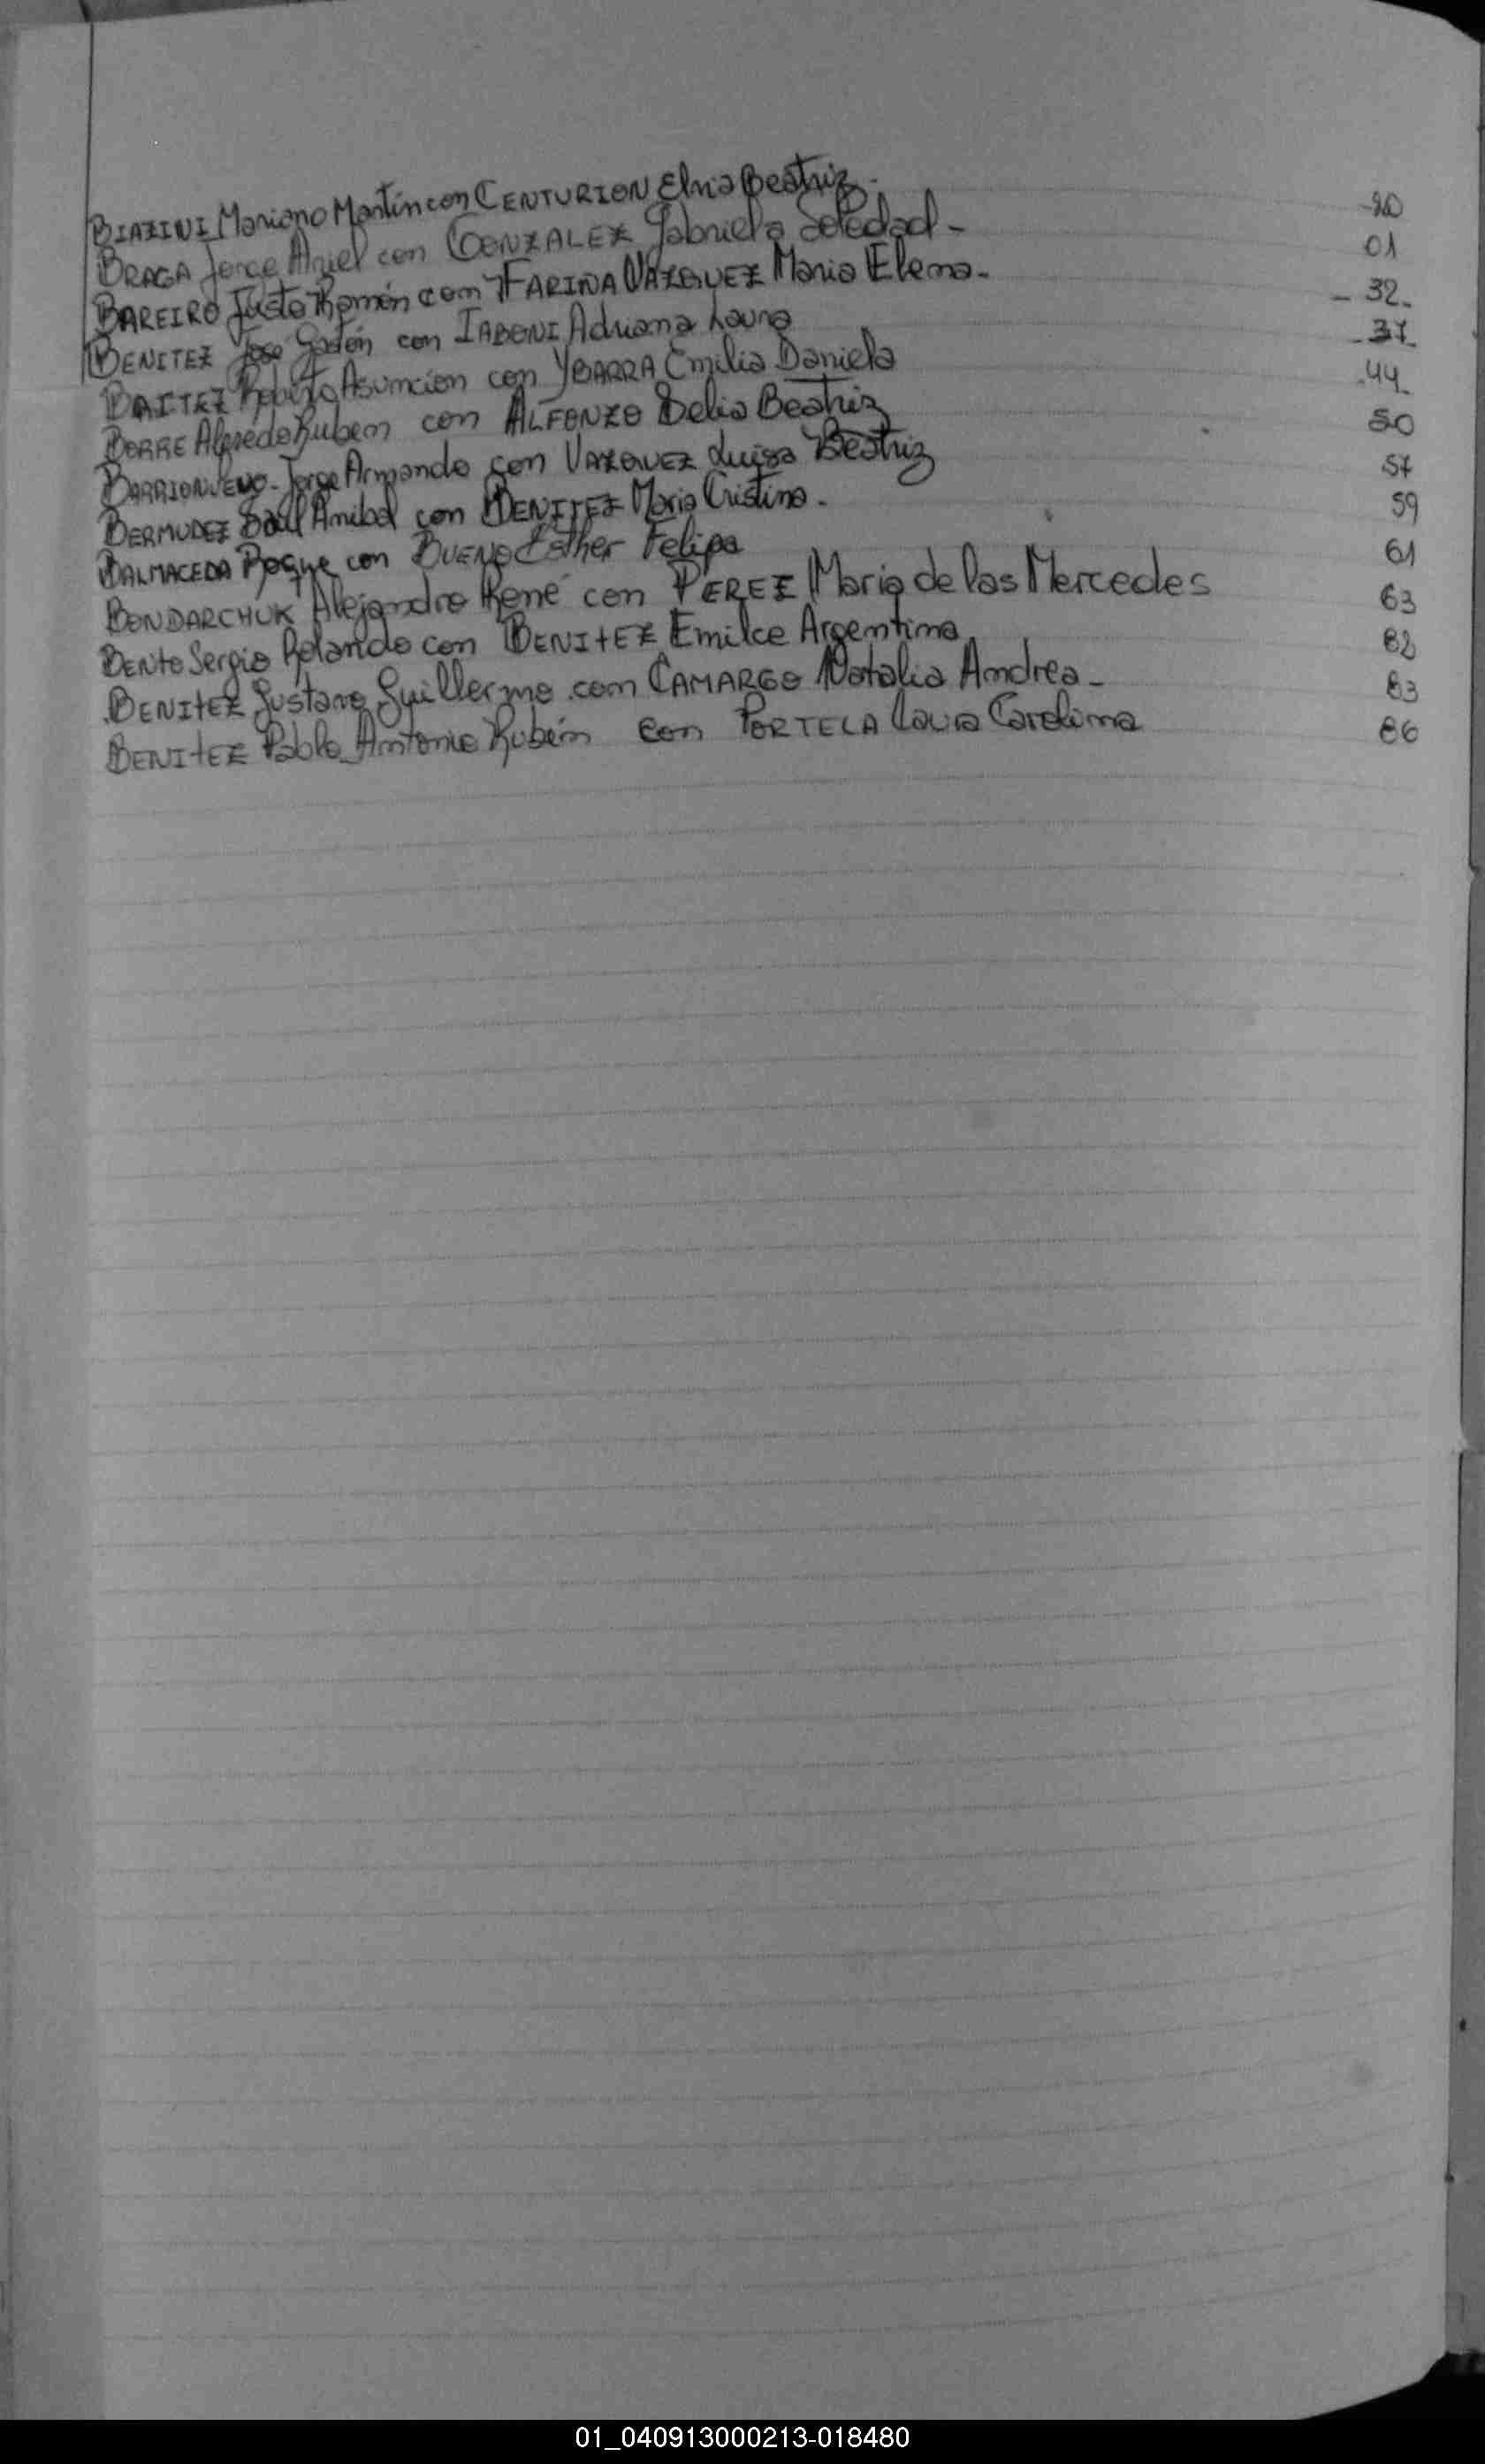 BIAZINI Mariano Martín con CENTURION Elvia Beatriz. -20
BRAGA Jorge Ariel con GONZALEZ Gabriela Soledad - 01
BAREIRO Justo Ramón con FARIÑA VAZQUEZ Maria Elena. - 32.
BENITEZ José Gastón con IABONI Adriana Laura - 37.
BAITEZ Roberto Asuncion con YBARRA Emilia Daniela .44.
BORRE Alfredo Ruben con ALFONZO Delia Beatriz 50
BARRIONUEVO - Jorge Armando con VAZQUEZ Luisa Beatriz 57
BERMUDEZ Saúl Anibal con BENITEZ Maria Cristina. 59
BALMACEDA Roque con BUENO Esther Felipa 61
BONDARCHUK Alejandro René con PEREZ Maria de las Mercedes 63
BENTO Sergio Rolando con BENITEZ Emilce Argentina 82
BENITEZ Gustavo Guillermo con CAMARGO Natalia Andrea - 83
BENITEZ Pablo Antonio Rubén con PORTELA Laura Carolina 86
01_040913000213-018480